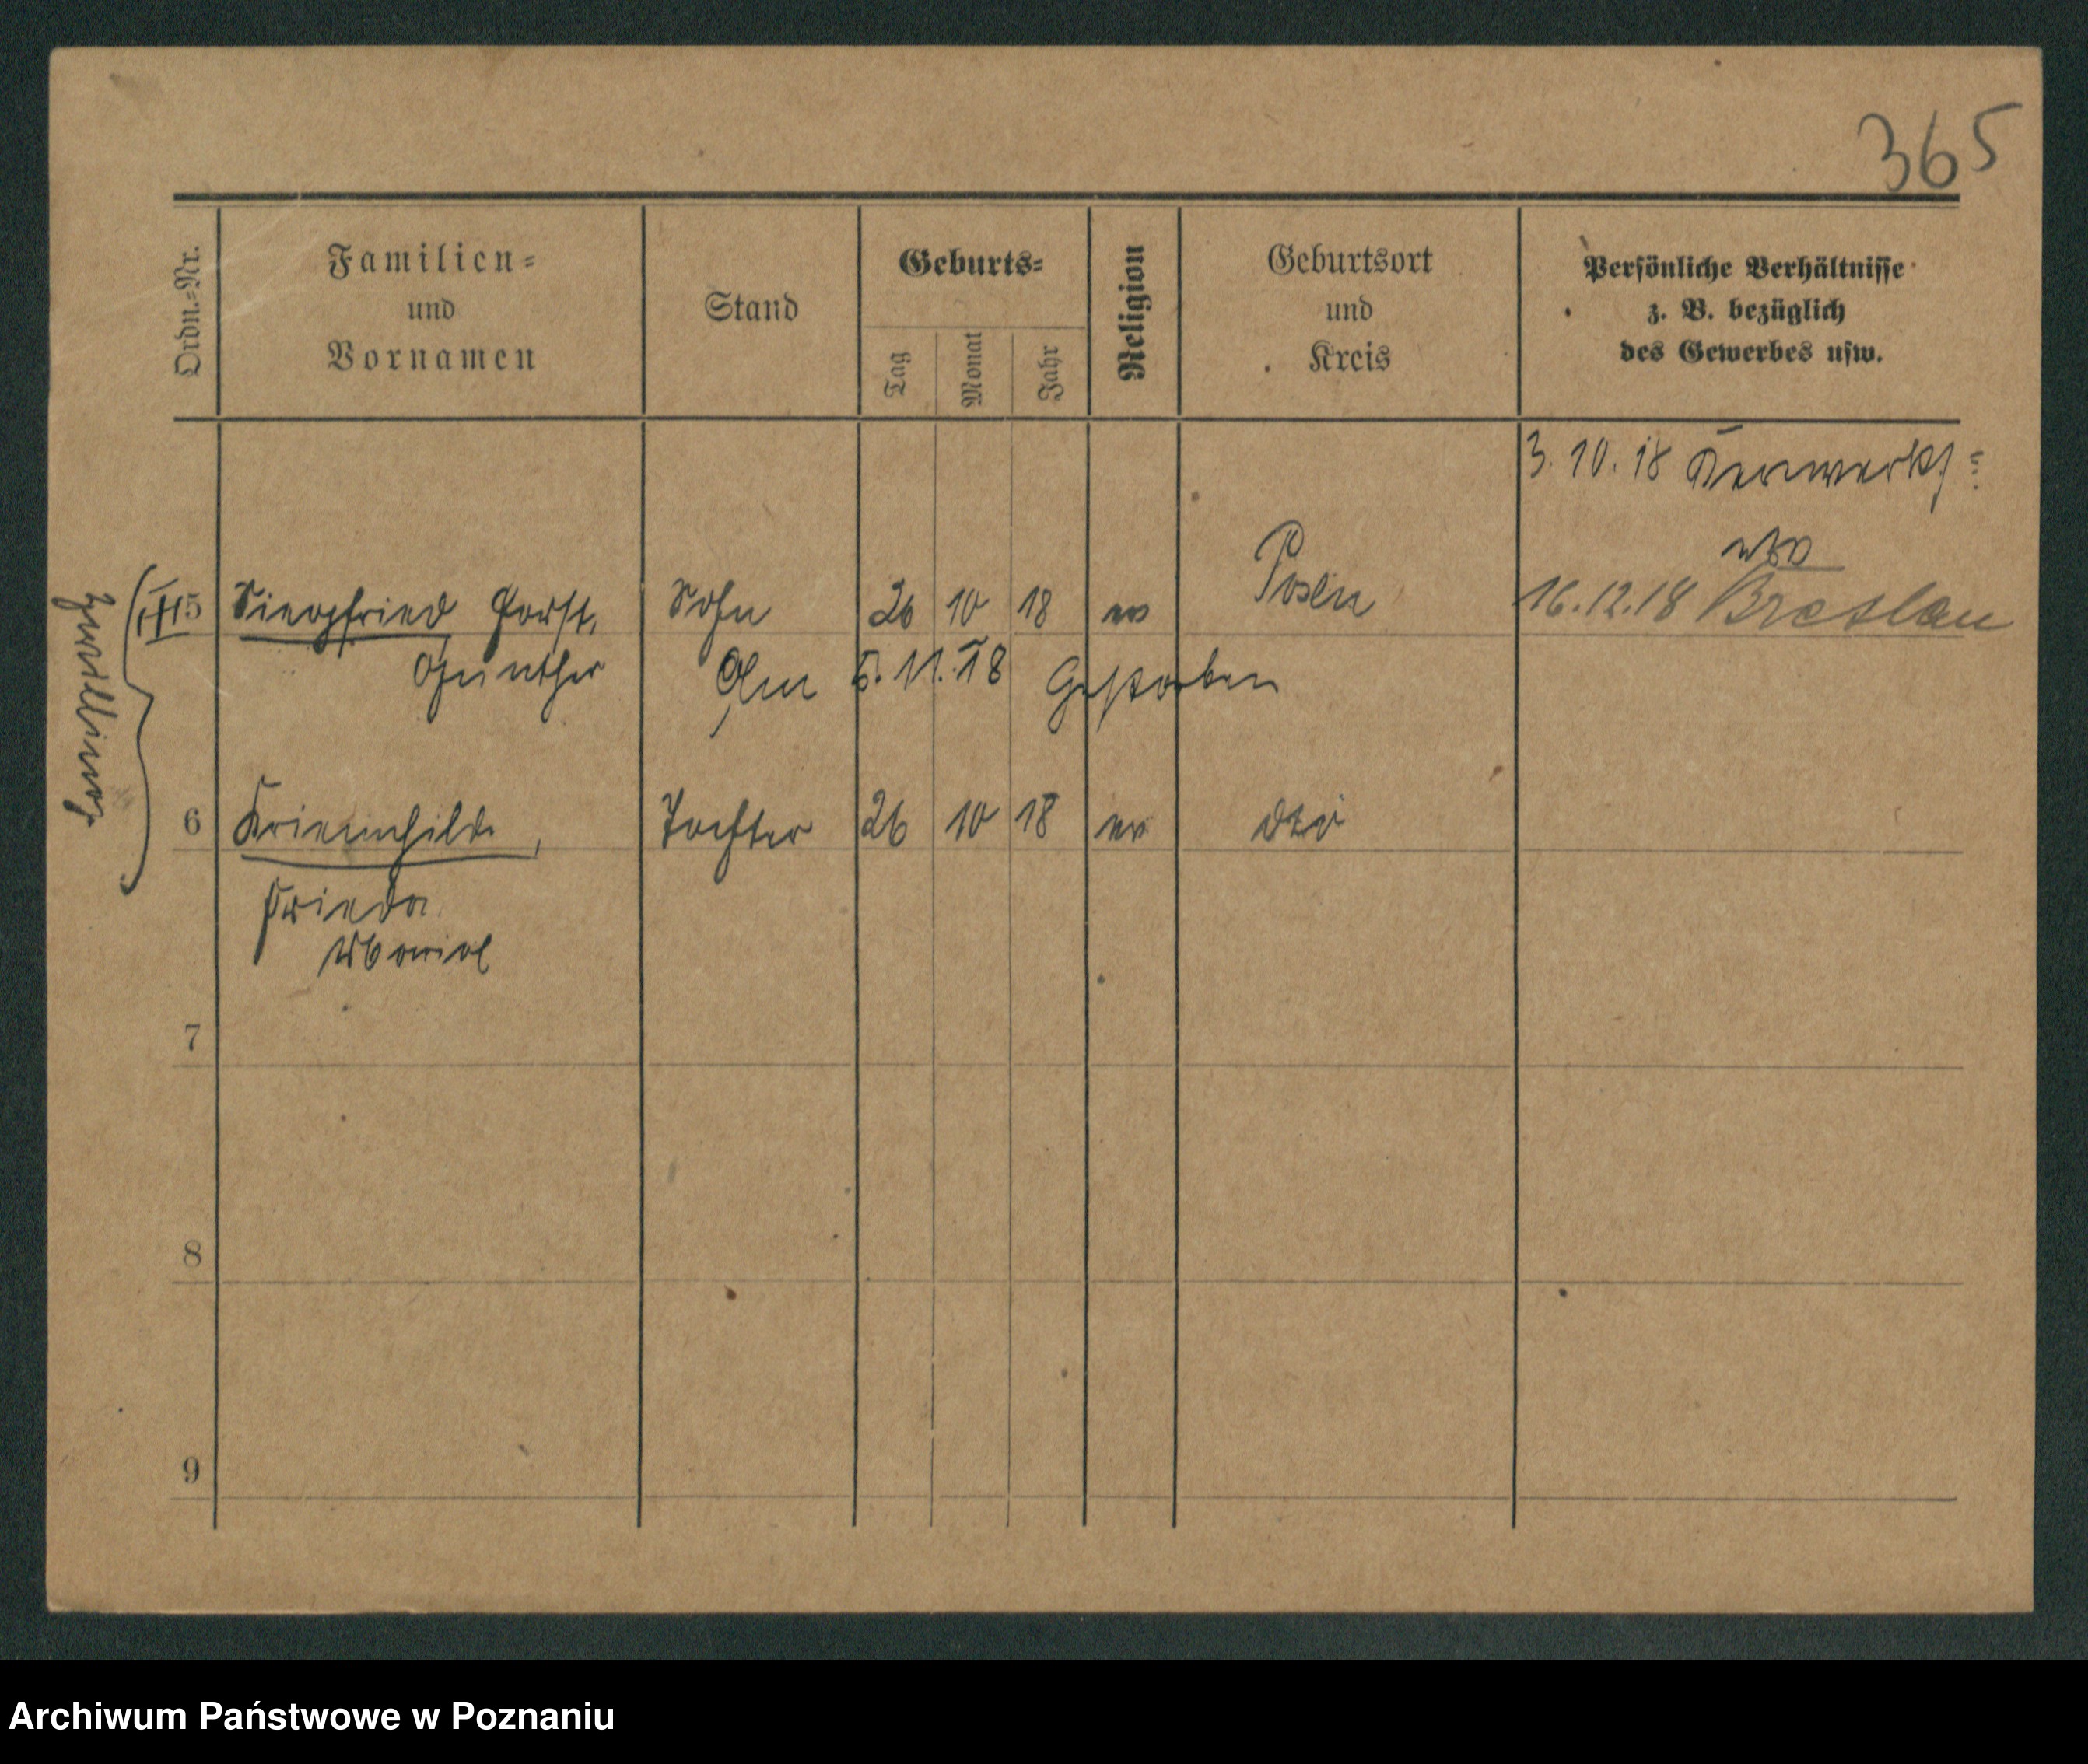 365
Ordn.=Nr.
Familien=
und
Vornamen
Stand
Geburts=
Tag
Monat
Jahr
Religion
Geburtsort
und
Kreis
Persönliche Verhältnisse
z. B. bezüglich
des Gewerbes usw.
3. 10. 18
Zwillinge
III 5 Siegfried Horst, Sohn 26 10 18 ev Posen 16.12.18 Breslau
Günther Am 5. 11. 18 Gestorben
6 Kriemhilde, Tochter 26 10 18 ev dto
Frieda
Maria
7
8
9
Archiwum Państwowe w Poznaniu